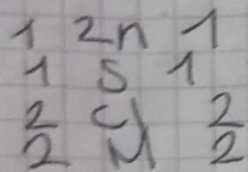 1 Zn 1
1 S 1
2 Cl 2
2 M 2